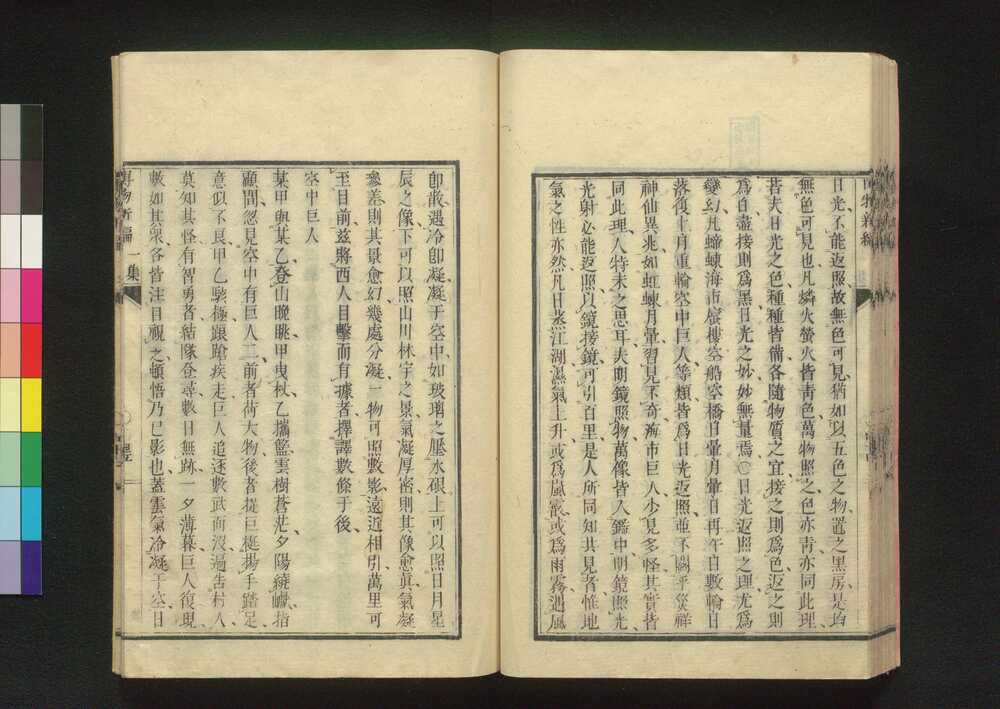 博物新編
日光不能返照故無色可見猶如以五色之物置之黑房是均
無色可見也凡燐火螢火皆靑色萬物照之色亦靑亦同此理
若夫日光之色種種皆備各隨物質之宜接之則爲色返之則
爲白盡接則爲黑日光之妙妙無量焉〇日光返照之理尤爲
變幻凡蝃蝀海市蜃樓空船空橋日暈月暈日再午日數輪日
落復十月重輪空中巨人等類皆爲日光返照並不關乎災祥
神仙異兆如虹蝀月暈習見不奇海市巨人少見多怪其實皆
同此理人特未之思耳夫明鏡照物萬像皆入鑑中明鏡照光
光射必能返照以鏡接鏡可引百里是人所同知共見者惟地
氣之性亦然凡日蒸江湖濕氣上升或爲嵐霰或爲雨霧遇風
卽散遇冷卽凝凝于空中如玻璃之壓水硍上可以照日月星
辰之像下可以照山川林宇之景氣凝厚密則其像愈眞氣凝
參差則其景愈幻幾處分凝一物可照數影遠近相引萬里可
至目前茲將西人目擊而有據者擇譯數條于後
空中巨人
某甲與某乙登山晚眺甲曳杖乙攜籃雲樹蒼茫夕陽繞巘指
顧間忽見空中有巨人二前者荷大物後者提巨梃揚手踏足
意似不良甲乙駭極踉蹌疾走巨人追逐數武而沒過吿村人
莫知其怪有智勇者結隊登尋數日無跡一夕薄暮巨人復現
數如其衆各皆注目視之頓悟乃已影也蓋雲氣冷凝于空日
博物新編 一集